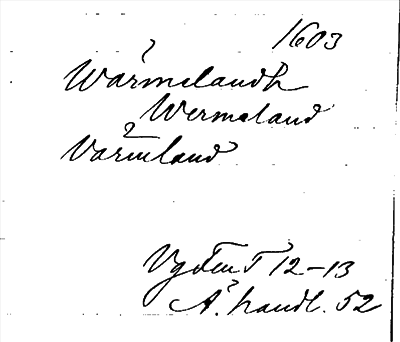 1603
Wärmelandh
Wermeland
Värmland
Vg Fem T 12-13
Ä. handl. 52